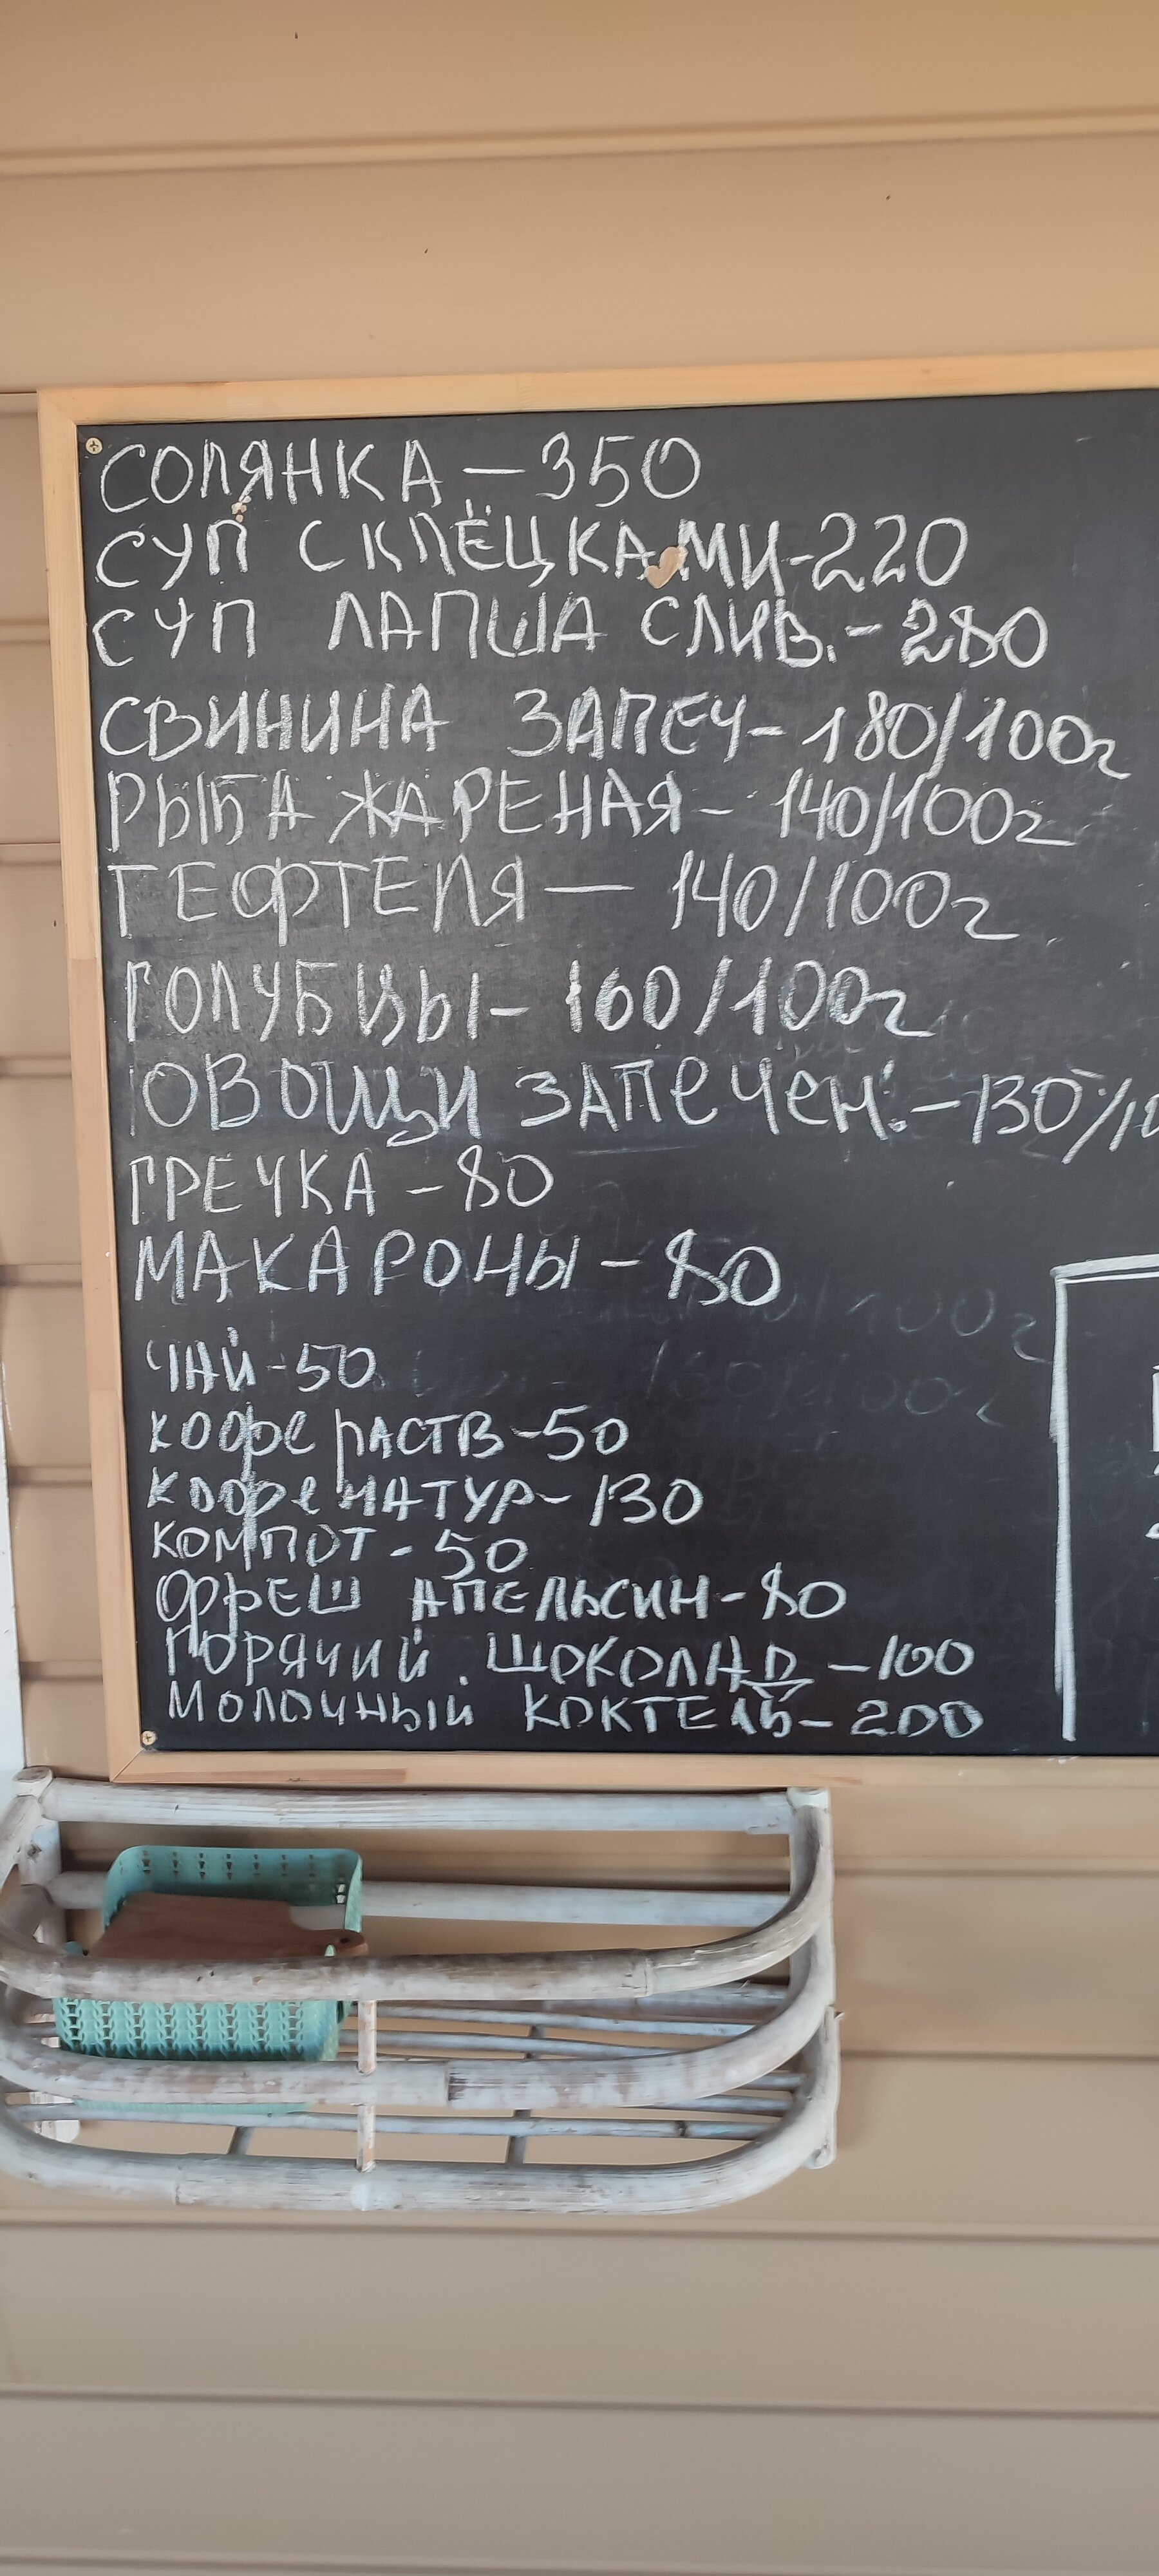 СОЛЯНКА – 350
СУП С КЛЁЦКАМИ-220
СУП ЛАПША СЛИВ. - 280
СВИНИНА ЗАПЕЧ- 180/100г
РЫБА ЖАРЕНАЯ - 140/100г
ТЕФТЕЛЯ — 140/100г
ГОЛУБЦЫ - 160/100г
ОВОЩИ ЗАПЕЧЕН. - 130/10
ГРЕЧКА - 80
МАКАРОНЫ - 80
ЧАЙ-50
КОФЕ РАСТВ-50
КОФЕ НАТУР- 130
КОМПОТ - 50
ФРЕШ АПЕЛЬСИН-80
ГОРЯЧИЙ ШОКОЛАД -100
МОЛОЧНЫЙ КОКТЕЛЬ- 200